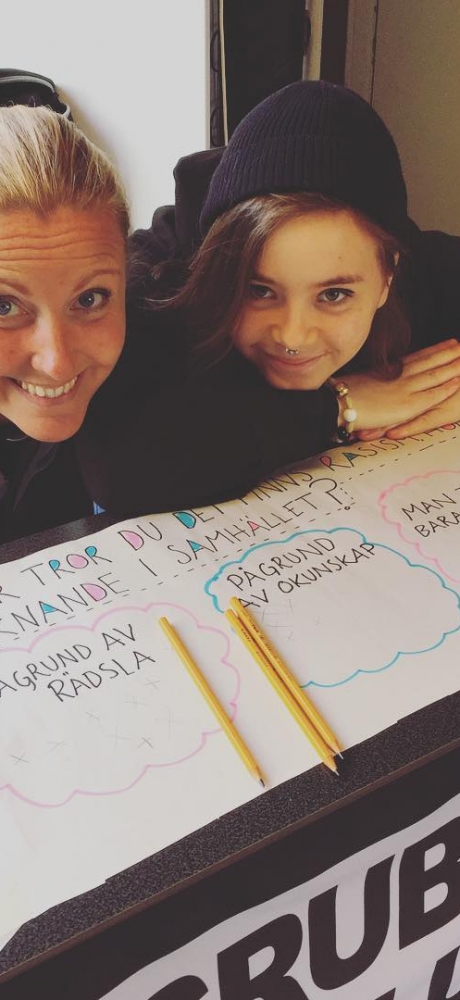 TROR DU DET FINNS RASISM
KNANDE I SAMHÄLLET?
PÅGRUND AV
RÄDSLA
PÅGRUND
AV OKUNSKAP
MAN
BARA
GRUB